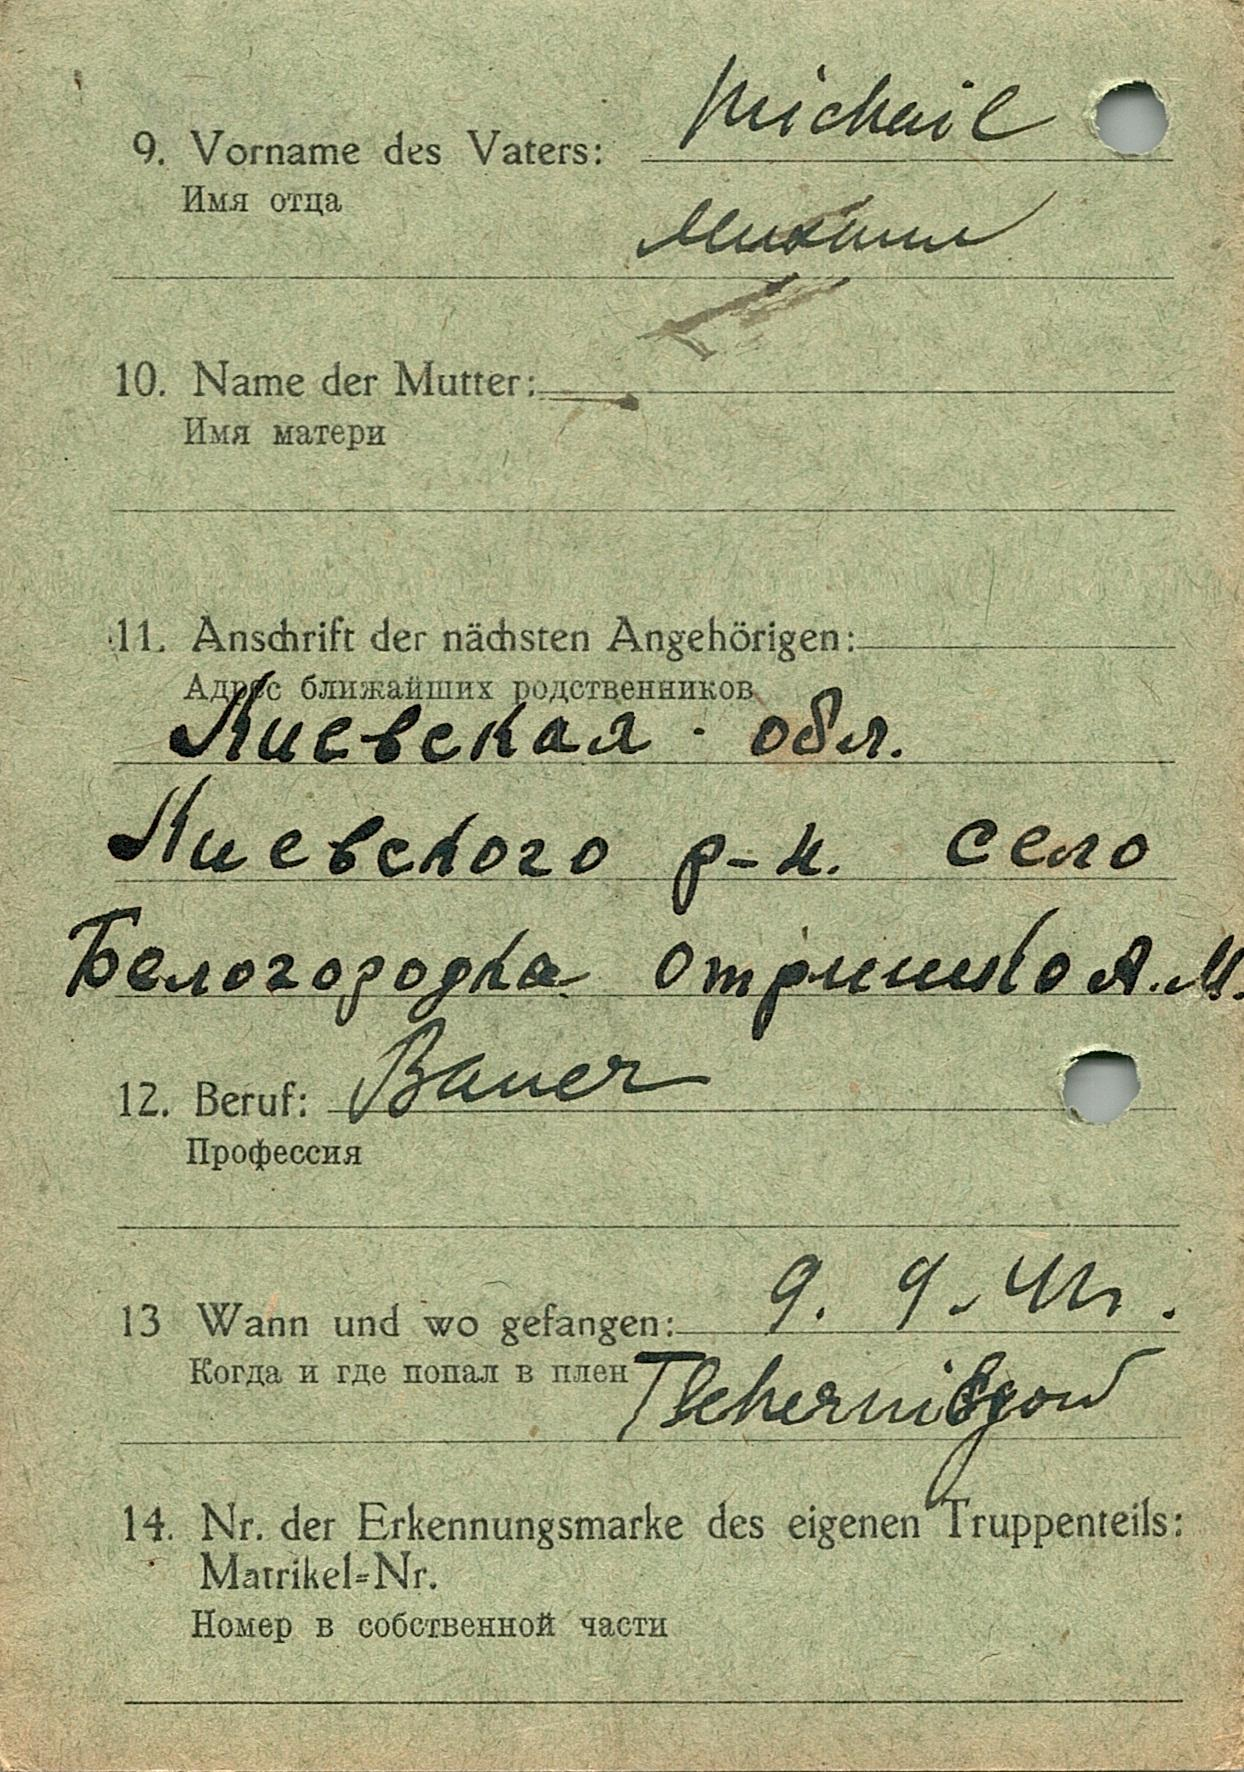 9. Vorname des Vaters: Michail
Имя отца
Михаил
10. Name der Mutter: —
Имя матери
11. Anschrift der nächsten Angehörigen:
Адрес ближайших родственников
Киевская обл.
Киевского р-н. село
Белогородка А.М.
12. Beruf: Bauer
Профессия
13 Wann und wo gefangen: 9. 9. 41.
Когда и где попал в плен Tschernigow
14. Nr. der Erkennungsmarke des eigenen Truppenteils:
Matrikel-Nr.
Номер в собственной части